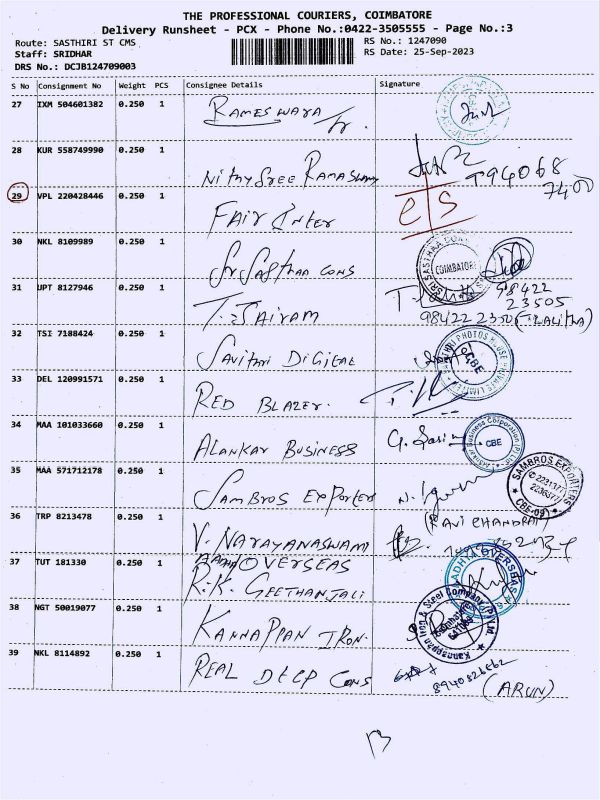 THE PROFESSIONAL COURIERS, COIMBATORE
Delivery Runsheet - PCX - Phone No.:0422-3505555 - Page No.:3
Route: SASTHIRI ST CMS RS No.: 1247090
Staff: SRIDHAR RS Date: 25-Sep-2023
DRS No.: DCJB124709003
S No Consignment No Weight PCS Consignee Details Signature
27 IXM 504601382 0.250 1 RAMESWARA
28 KUR 558749990 0.250 1 Nithysree Ramaswamy 794068
7400
29 VPL 220428446 0.250 1 FAIR Inter
30 NKL 8109989 0.250 1 Sri Sasthaa cons COIMBATORE
31 UPT 8127946 0.250 1 T. JAIRAM 98422
23505
98422 23505 (T. LALITHA)
32 TSI 7188424 0.250 1 Savithri Digital CBE
33 DEL 120991571 0.250 1 RED BLAZER.
34 MAA 101033660 0.250 1 ALANKAR BUSINESS G. Sasi CBE
35 MAA 571712178 0.250 1 SAMBROS EXPORTERS SAMBROS EXPORTERS CBE-09
36 TRP 8213478 0.250 1 V. NARAYANASWAMI (RAVI CHANDRAN)
37 TUT 181330 0.250 1 OVERSEAS
R.K. GEETHANJALI
38 NGT 50019077 0.250 1 KANNAPPAN IRON. Kannappan Iron & Steel Company (P) Ltd.
39 NKL 8114892 0.250 1 REAL DTCP CONS
(ARUN)